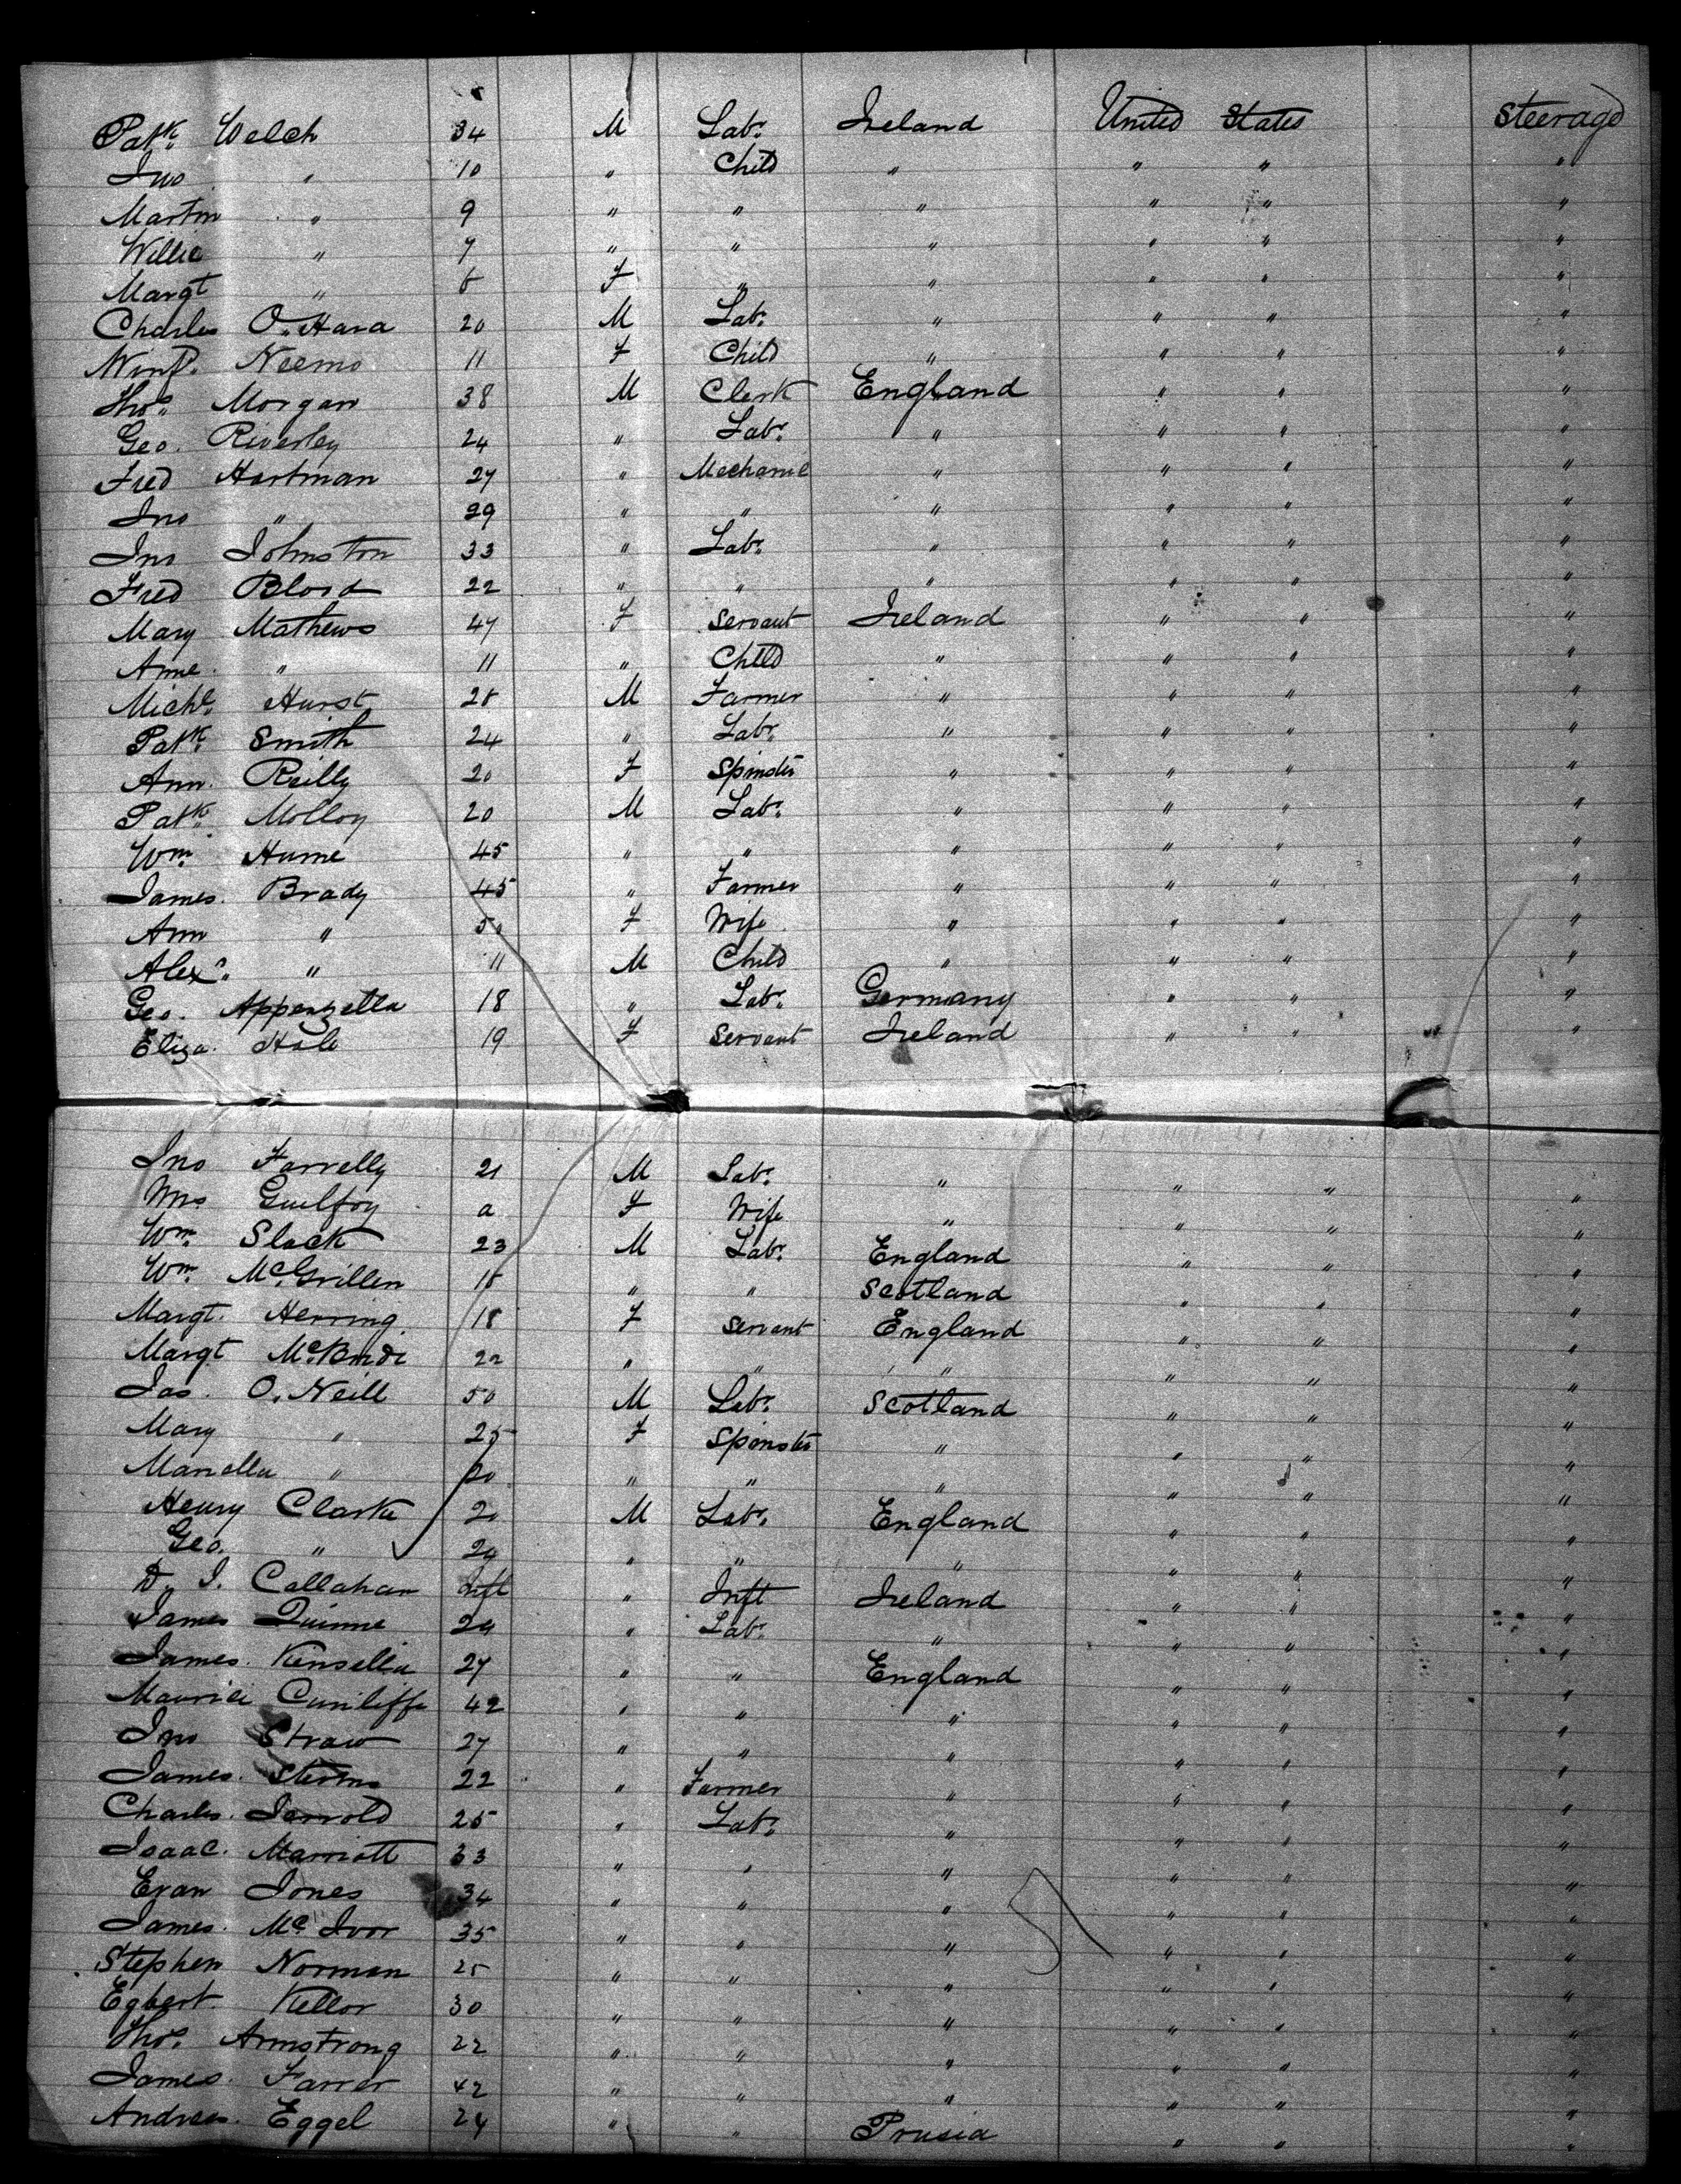 Patk. Welch 34 M Labr. Ireland United States Steerage
Jno " 10 " Child " " " "
Martin " 9 " " " " " "
Willie " 7 " " " " " "
Margt " 6 F " " " " "
Charles O.Hara 20 M Labr. " " " "
Winfd. Neemo 11 F Child " " " "
Thos. Morgan 38 M Clerk England " " "
Geo. Riverley 24 " Labr. " " " "
Fred Hartman 27 " Mechanic " " " "
Jno " 29 " " " " " "
Jno Johnston 33 " Labr. " " " "
Fred Blood 22 " " " " " "
Mary Mathews 47 F Servant Ireland " " "
Anne " 11 " Child " " " "
Michl. Hurst 28 M Farmer " " " "
Patk. Smith 24 " Labr. " " " "
Ann. Reilly 20 F Spinster " " " "
Patk. Molloy 20 M Labr. " " " "
Wm. Hume 45 " " " " " "
James. Brady 45 " Farmer " " " "
Ann " 50 F Wife " " " "
Alexr. " 11 M Child " " " "
Geo. Appenzella 18 " Labr. Germany " " "
Eliza. Hole 19 F Servant Ireland " " "
Jno Farrelly 21 M Labr. " " " "
Mrs Guilfoy a F Wife " " " "
Wm. Slack 23 M Labr. England " " "
Wm. McGrillen 18 " " Scotland " " "
Margt. Herring 18 F Servant England " " "
Margt McBride 22 " " " " " "
Jas. O.Neill 50 M Labr. Scotland " " "
Mary " 25 F Spinster " " " "
" 20 " " " " " "
Henry Clarke 20 M Labr. England " " "
Geo. " 24 " " " " " "
D. J. Callahan Inft " Inft Ireland " " "
James Quinne 24 " Labr. " " " "
James. Kinsella 27 " " England " " "
Maurice Cunliffe 42 " " " " " "
Jno Straw 27 " " " " " "
James. 22 " Farmer " " " "
Charles. Jerrold 25 " Labr. " " " "
Isaac. Marriott 33 " " " " " "
Evan Jones 34 " " " " " "
James. Mc Ivor 35 " " " " " "
Stephen Norman 25 " " " " " "
Egbert. Kellor 30 " " " " " "
Thos. Armstrong 22 " " " " " "
James. Farrer 42 " " " " " "
Andreas. Eggel 24 " " Prusia " " "